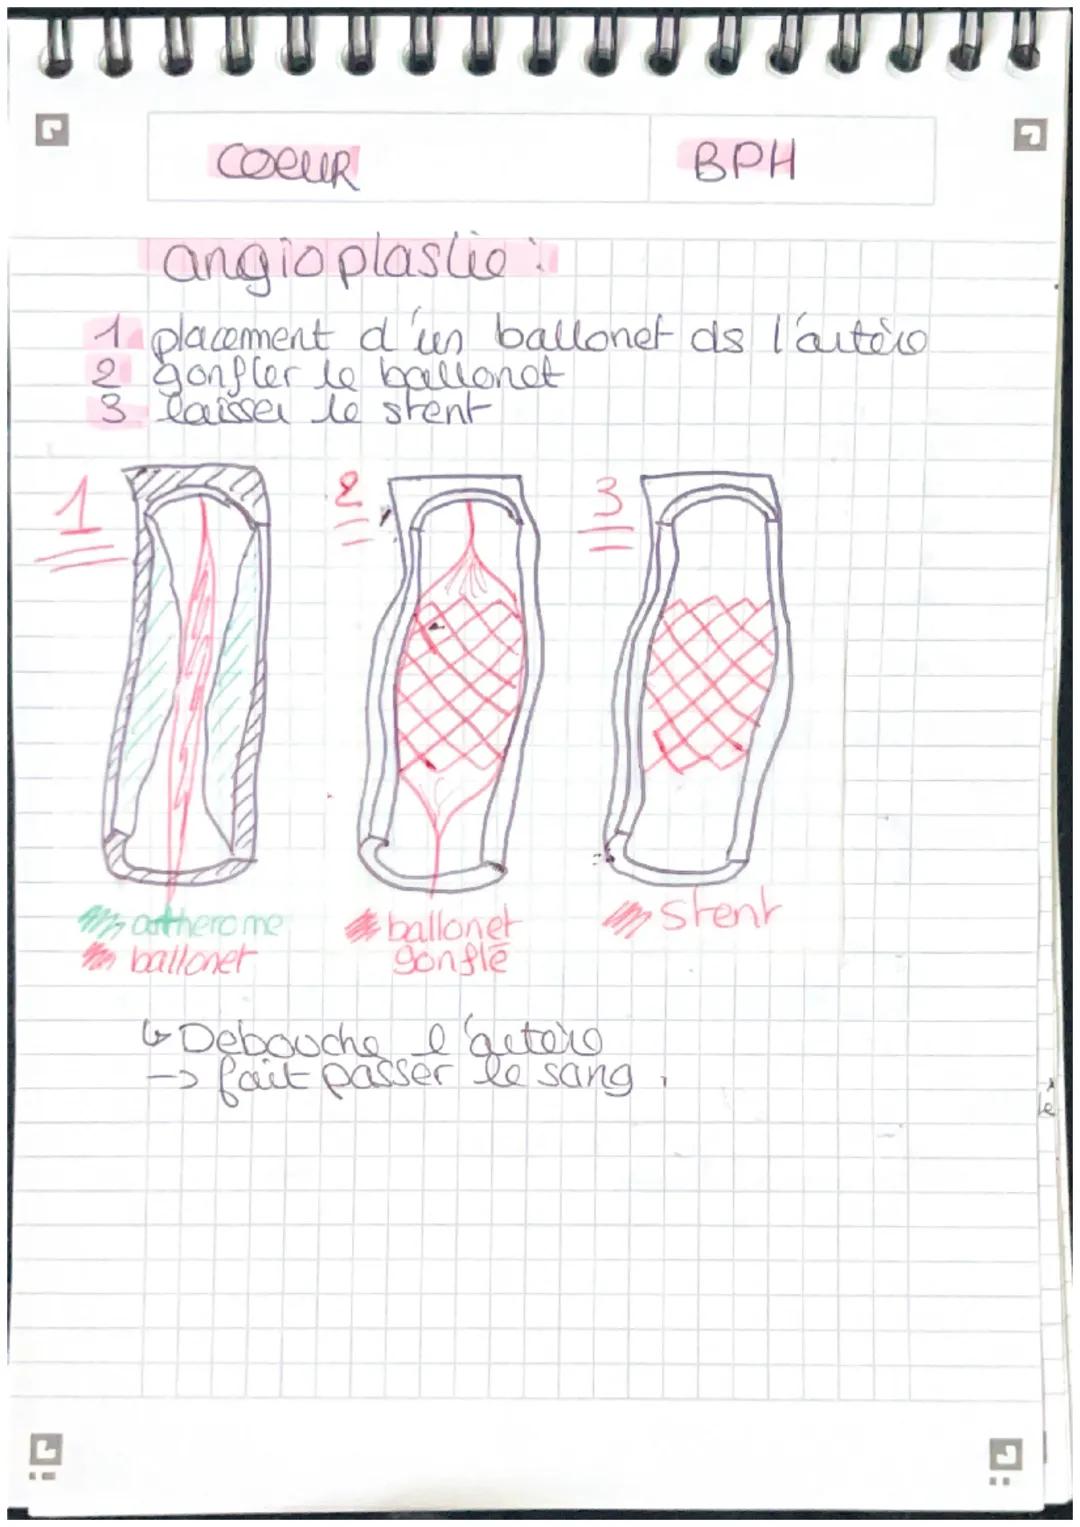 COEUR
BPH
angioplastie :
1 placement d'un ballonet ds l'artère
2 gonfler le ballonet
3 laisser le stent
1
2
3
artherome
ballonet
ballonet
gonflé
stent
↳ Debouche l'artère
-> fait passer le sang.